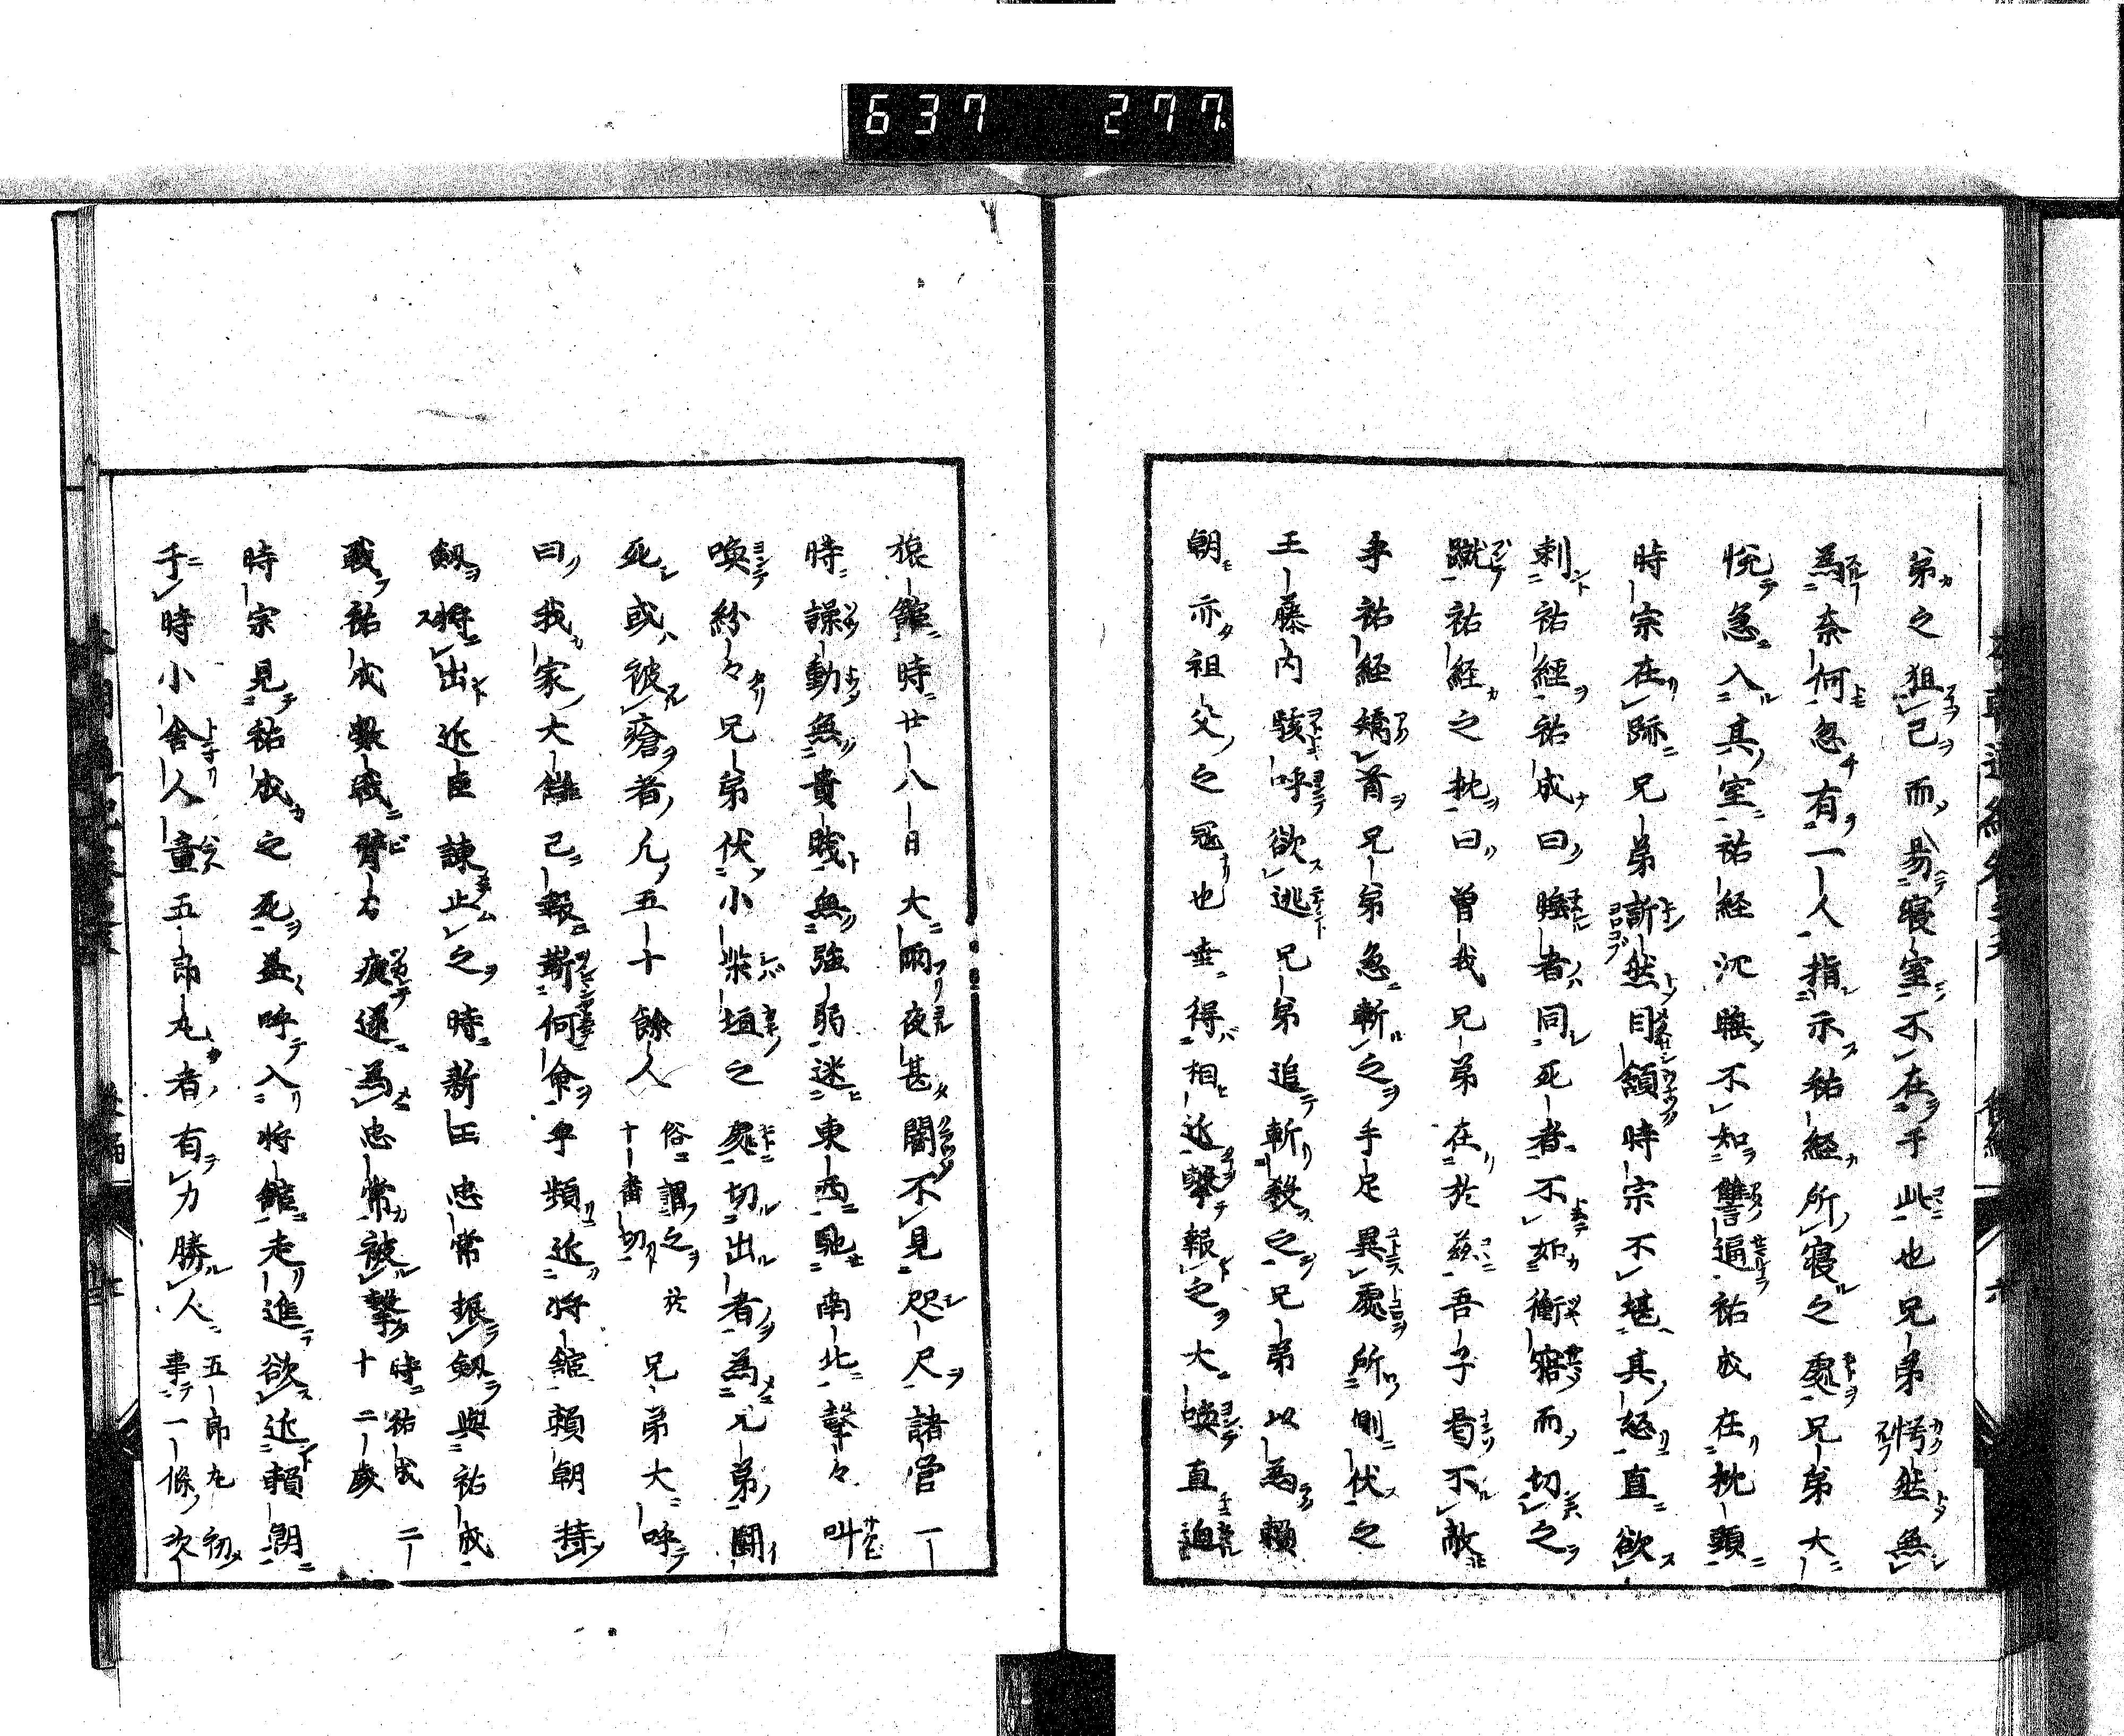 637 277
弟之狙己而易寝室不在于此也兄弟愕然無
為奈何忽有一人指示祐経所寝之處兄弟大
悦急入其室祐経沉睡不知讐逼祐成在枕頭
時宗在跡兄弟訢然目額時宗不堪其怒直欲
刺祐經祐成曰睡者同死者不如衝寤而切之
蹴祐経之枕曰曽我兄弟在於茲吾子曷不敵
乎祐経矯首兄弟急斬之手足異處所側伏之
王藤内駭呼欲逃兄弟追斬殺之兄弟以為頼
朝亦祖父之冦也幸得相近撃報之大喚直迫
旅館時廿八日大雨夜甚闇不見咫尺諸營一
時譟動無貴賎無強弱迷東西馳南北撃々叫
喚紛々兄弟伏小柴垣之處切出者為兄弟鬪
死或被瘡者凡五十餘人俗謂之於十番切兄弟大呼
曰我家大讎已報嶄何命乎頻近将舘頼朝持
劔将出近臣諌止之時新田忠常振劔與祐成
戰祐成數戰臂方疲遂為忠常被撃時祐成二十二歳
時宗見祐成之死益呼入将館走進欲近頼朝
于時小舎人童五郎丸者有力勝人五郎丸初事一條次